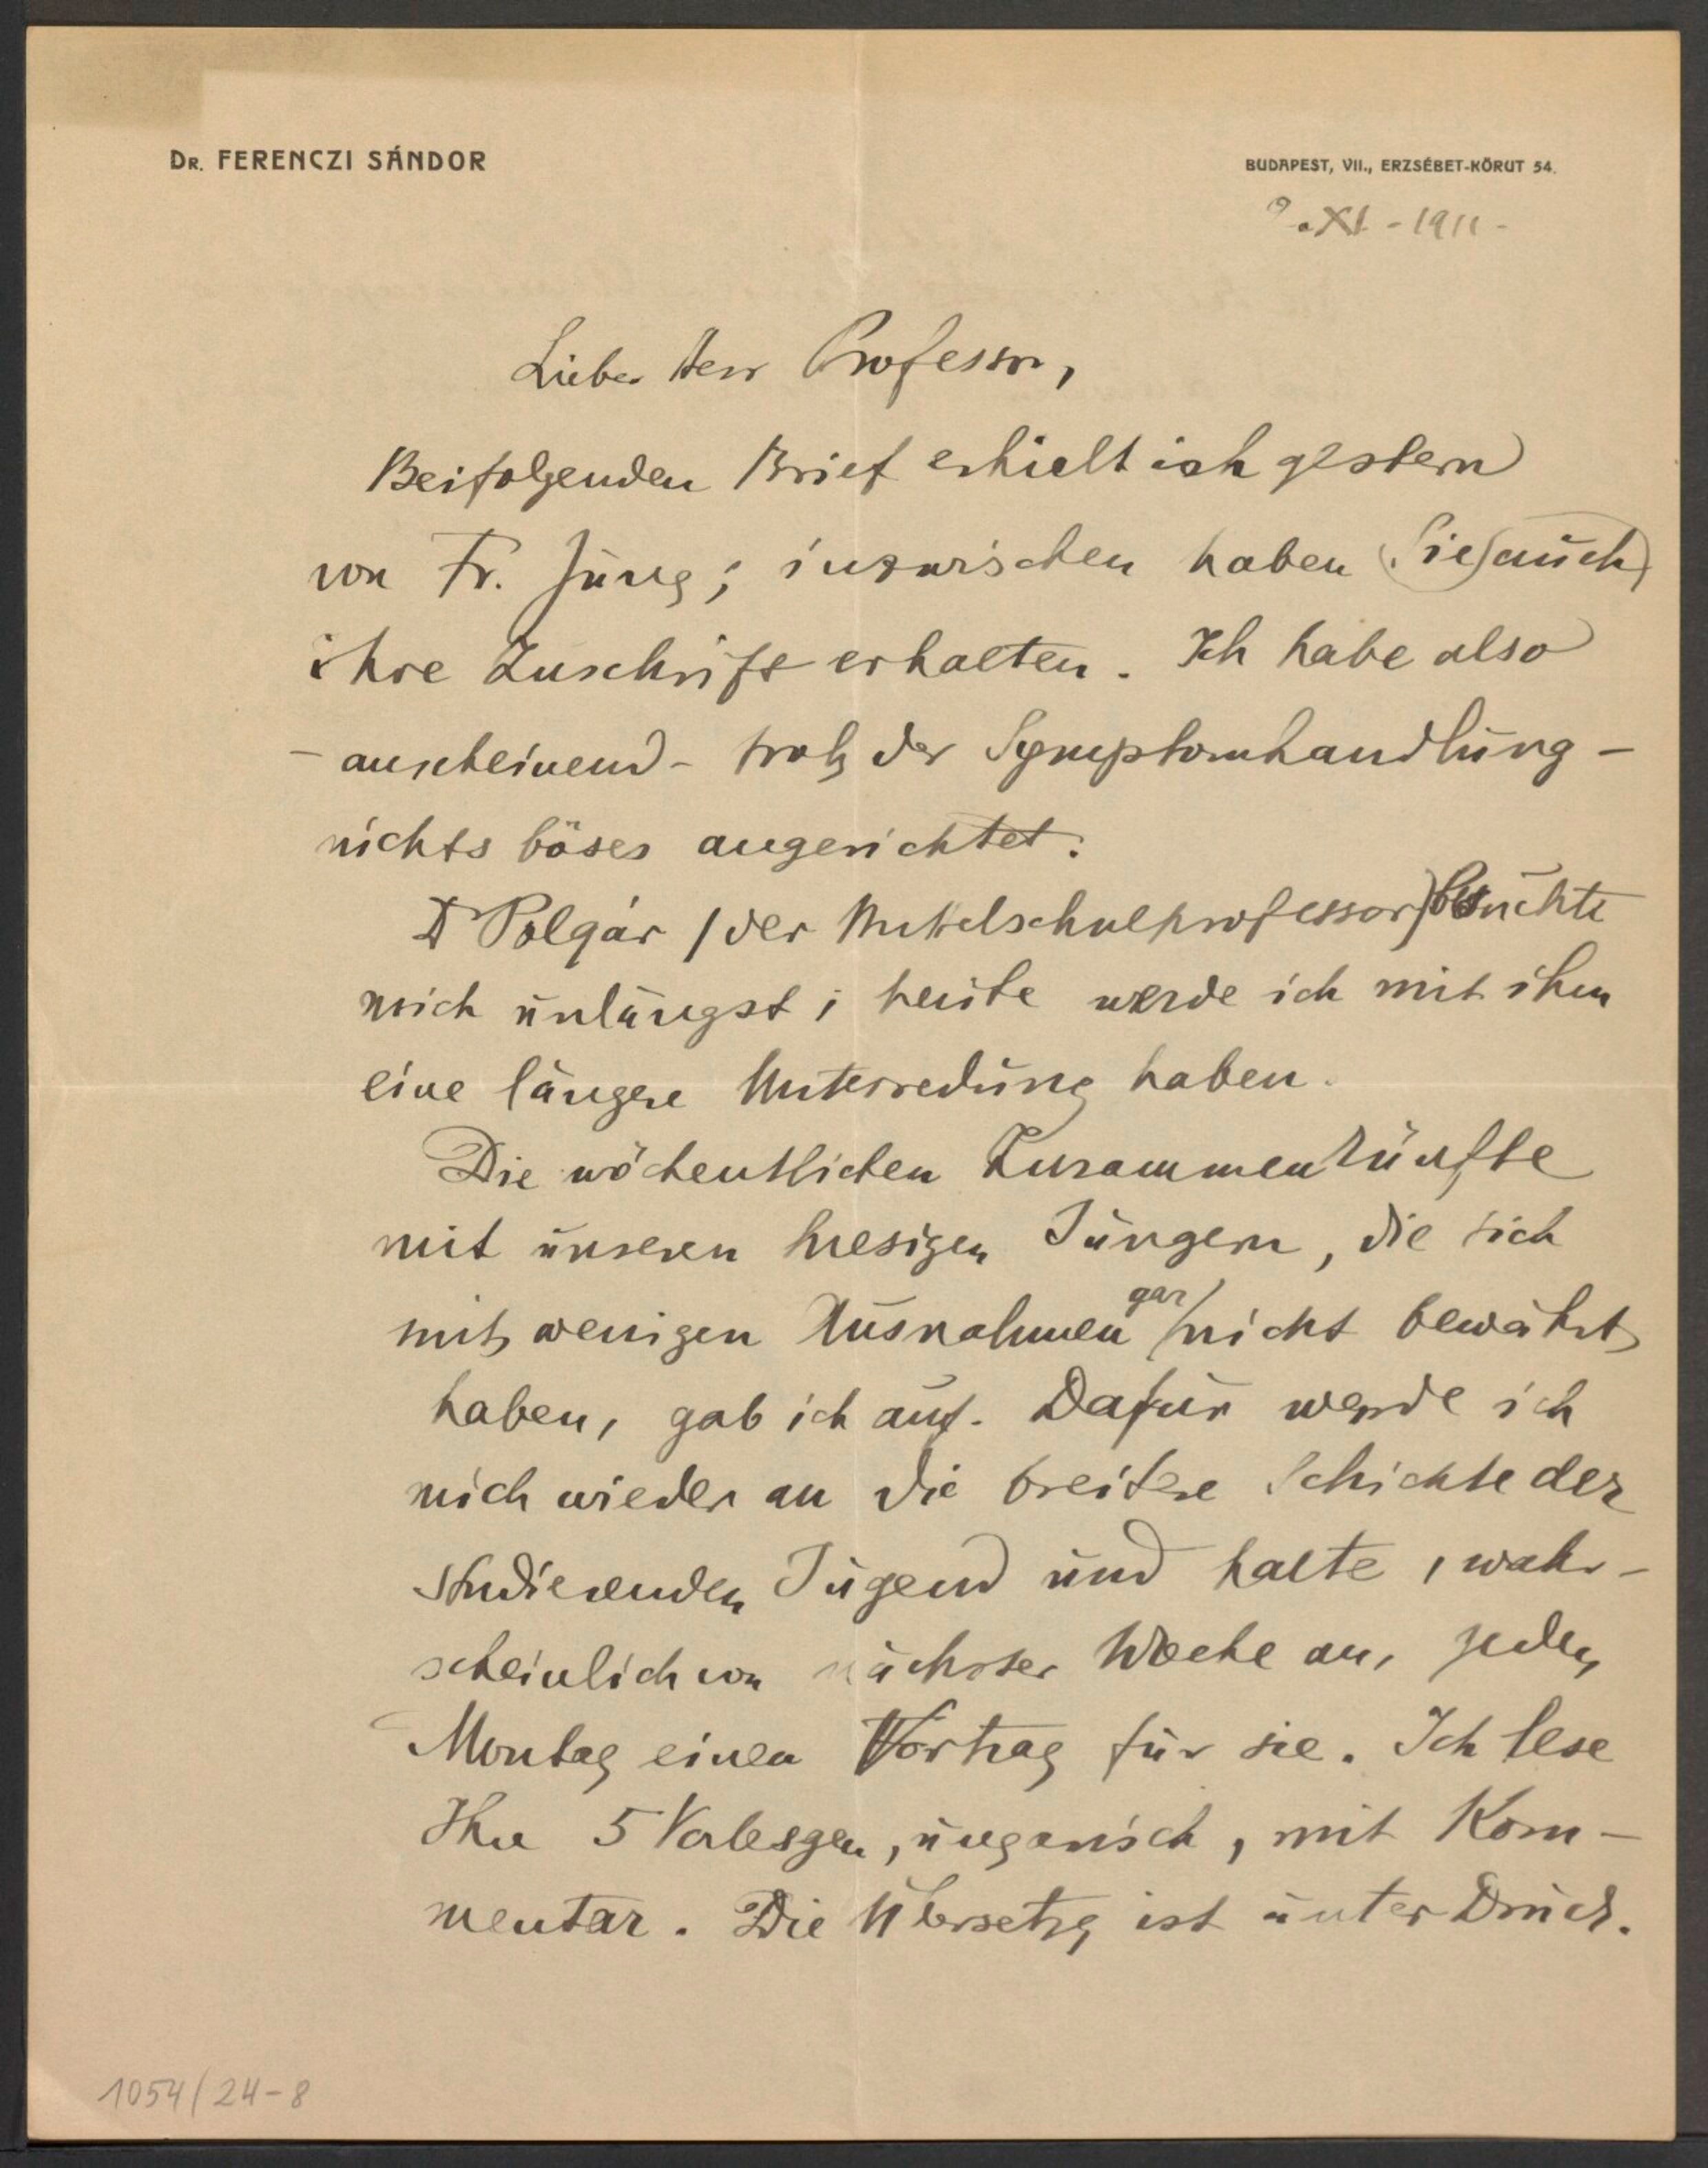 DR. FERENCZI SÁNDOR
BUDAPEST, VII., ERZSÉBET-KÖRUT 54.
9. XI - 1911 -
Lieber Herr Professor,
Beifolgenden Brief erhielt ich gestern
von Fr. Jung; inzwischen haben (Sie) auch
ihre Zuschrift erhalten. Ich habe also
- anscheinend - trotz der Symptomhandlung -
nichts böses angerichtet.
Dr Polgár / der Mittelschulprofessor) besuchte
mich unlängst; heute werde ich mit ihm
eine längere Unterredung haben.
Die wöchentlichen Zusammenkünfte
mit unseren hiesigen Jüngern, die sich
mit wenigen Ausnahmen gar nicht bewährt
haben, gab ich auf. Dafür wende ich
mich wieder an die breitere Schichte der
studierenden Jugend und halte, wahr-
scheinlich von nächster Woche an, jeden
Montag einen Vortrag für sie. Ich lese
Ihre 5 Vorlesgen, ungarisch, mit Kom-
mentar. Die Übersetzg ist unter Druck.
1054/24-8